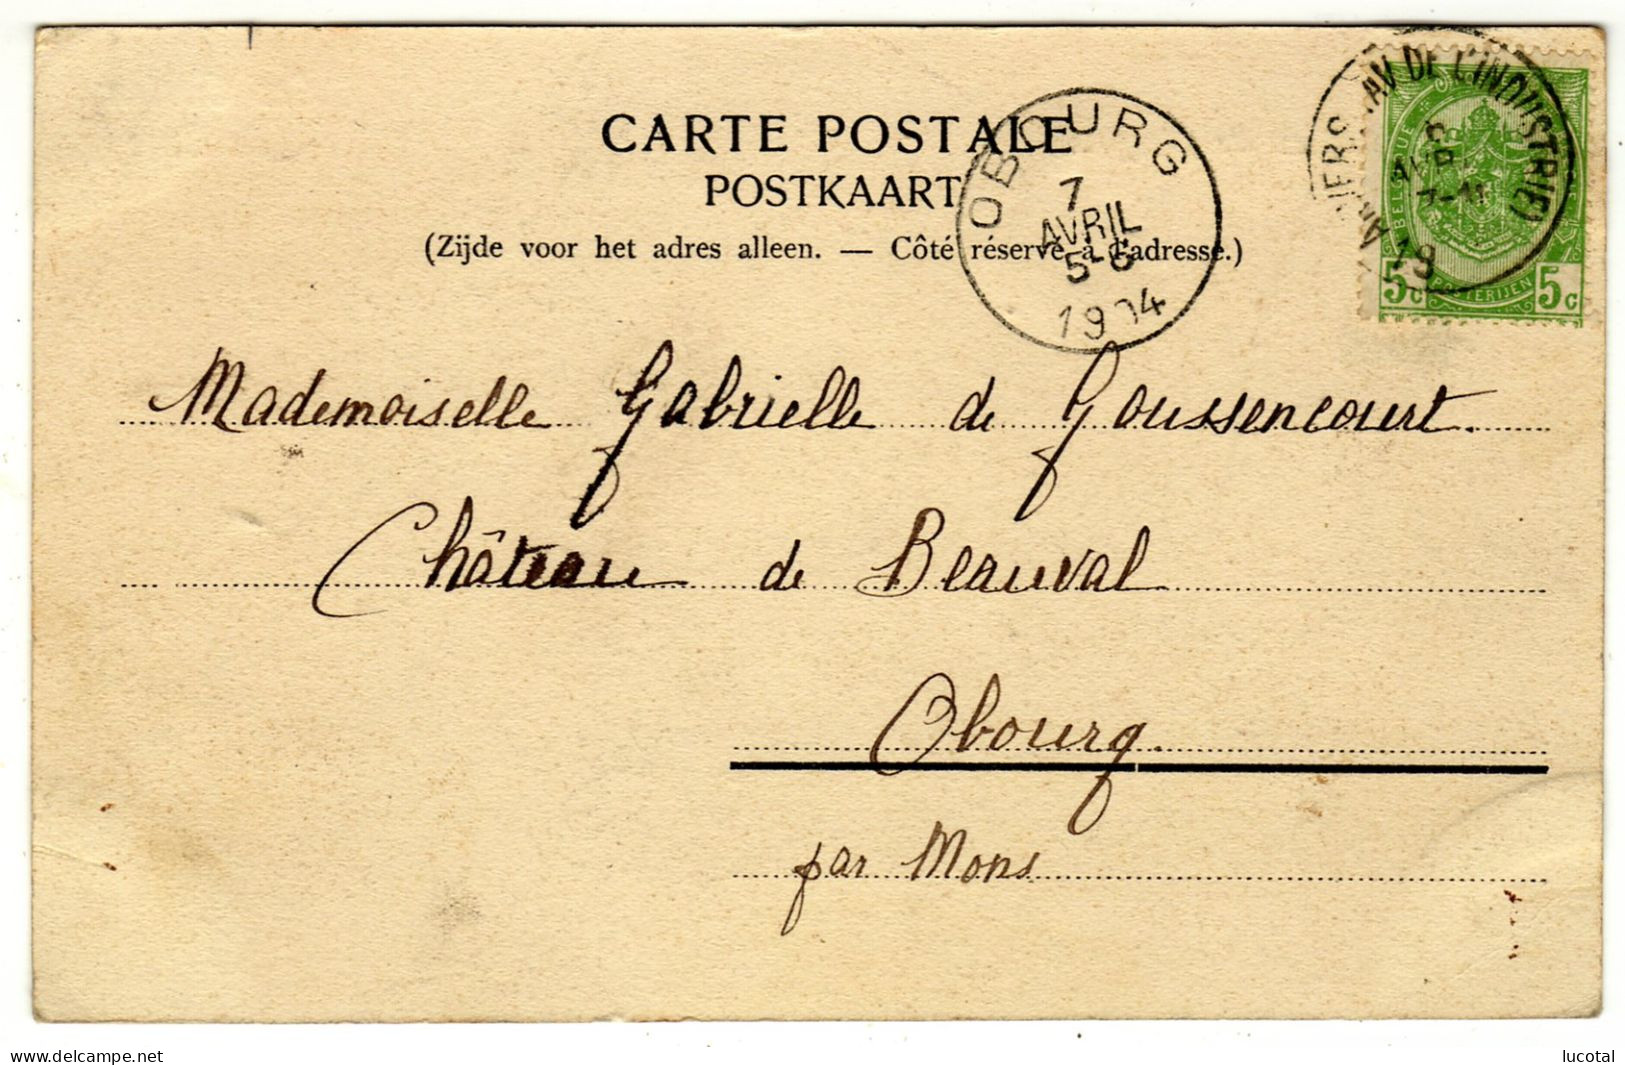 CARTE POSTALE
POSTKAART
(Zijde voor het adres alleen. — Côté réservé à l'adresse.)
OBOURG
7
AVRIL
5-6
1904
ANVERS (AV DE L'INDUSTRIE)
AVR
19
BELGIQUE
POSTERIJEN
5c 5c
Mademoiselle Gabrielle de Goussencourt.
Château de Beauval
Obourg.
par Mons
delcampe.net
lucotal